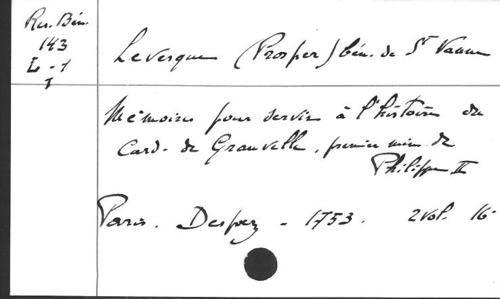 Res. Bén.
143
L - 1
I
Levesque (Prosper) bén. de St Vanne
Mémoires pour servir à l'histoire du
Card. de Granvelle, premier min. de
Philippe II
Paris. Despez - 1753. 2 vol. 16-